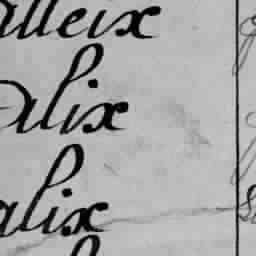 alleix
alix
alix